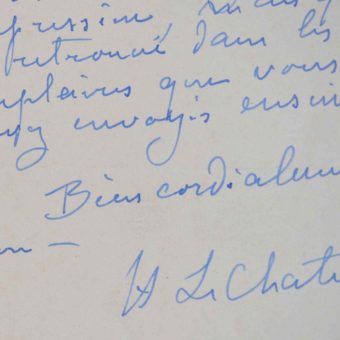 pression, mais
retrouvé dans les
mplaires que vous
ez envoyés ensui
Bien cordialem
on –
H Le Chate